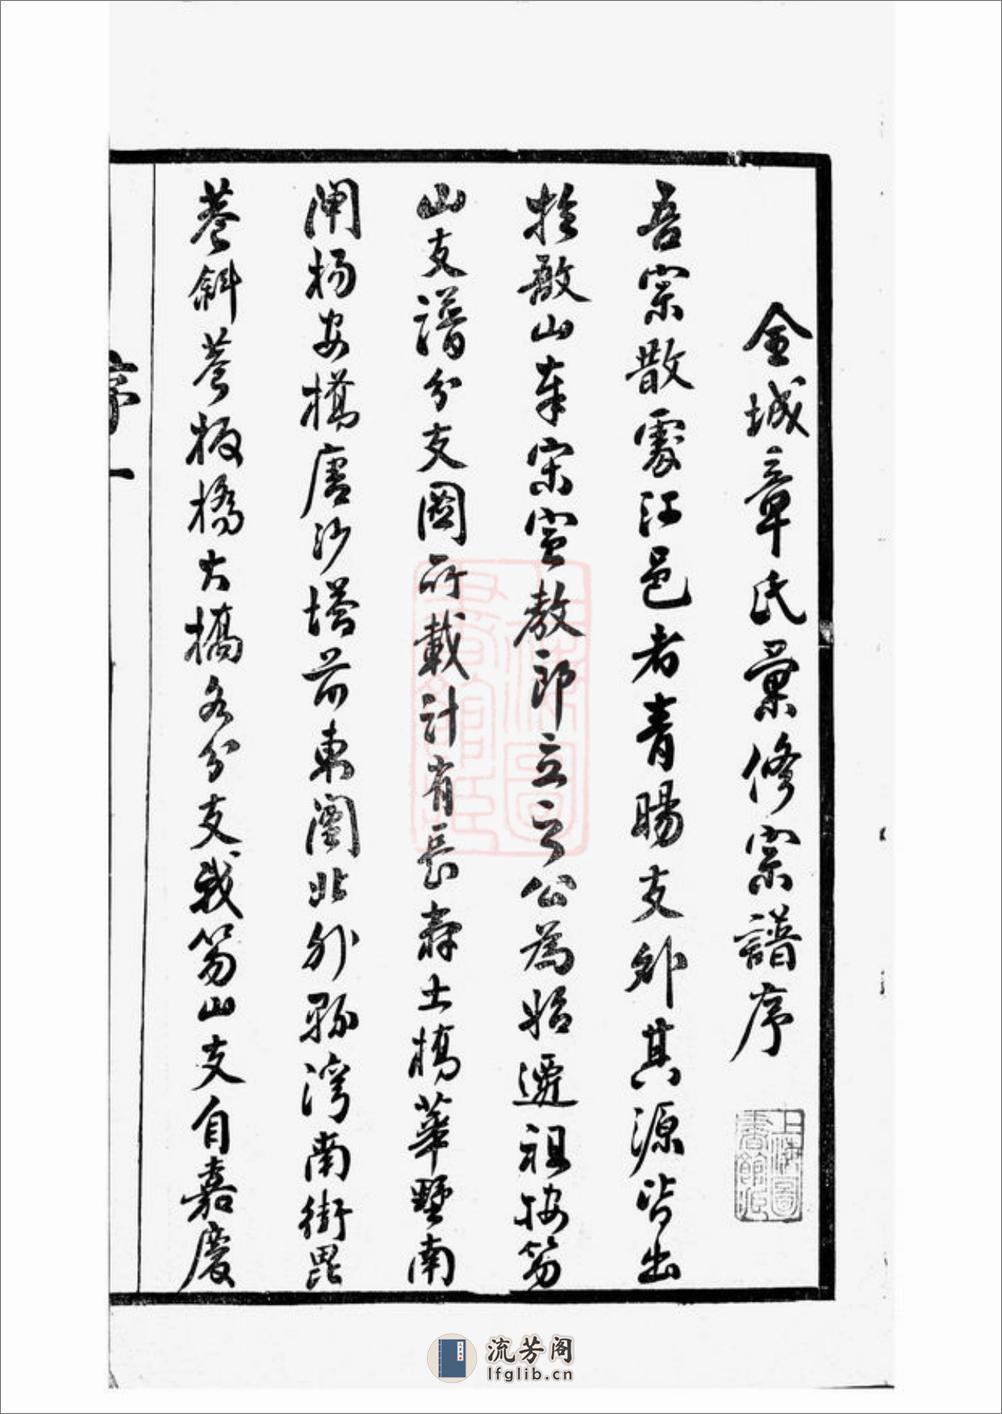 金城章氏彙修宗譜序
吾宗散處江邑者青暘支外其源皆出
於敔山奉宋宣教郎立之公為始遷祖按芴
山支譜分支圖所載計有長壽土橋華墅南
閘楊安橋唐沙塔前東閣北外孫灣南街毘
巷斜巷板橋大橋各分支我芴山支自嘉慶
序 一
上海圖書館藏
流芳阁
lfglib.cn